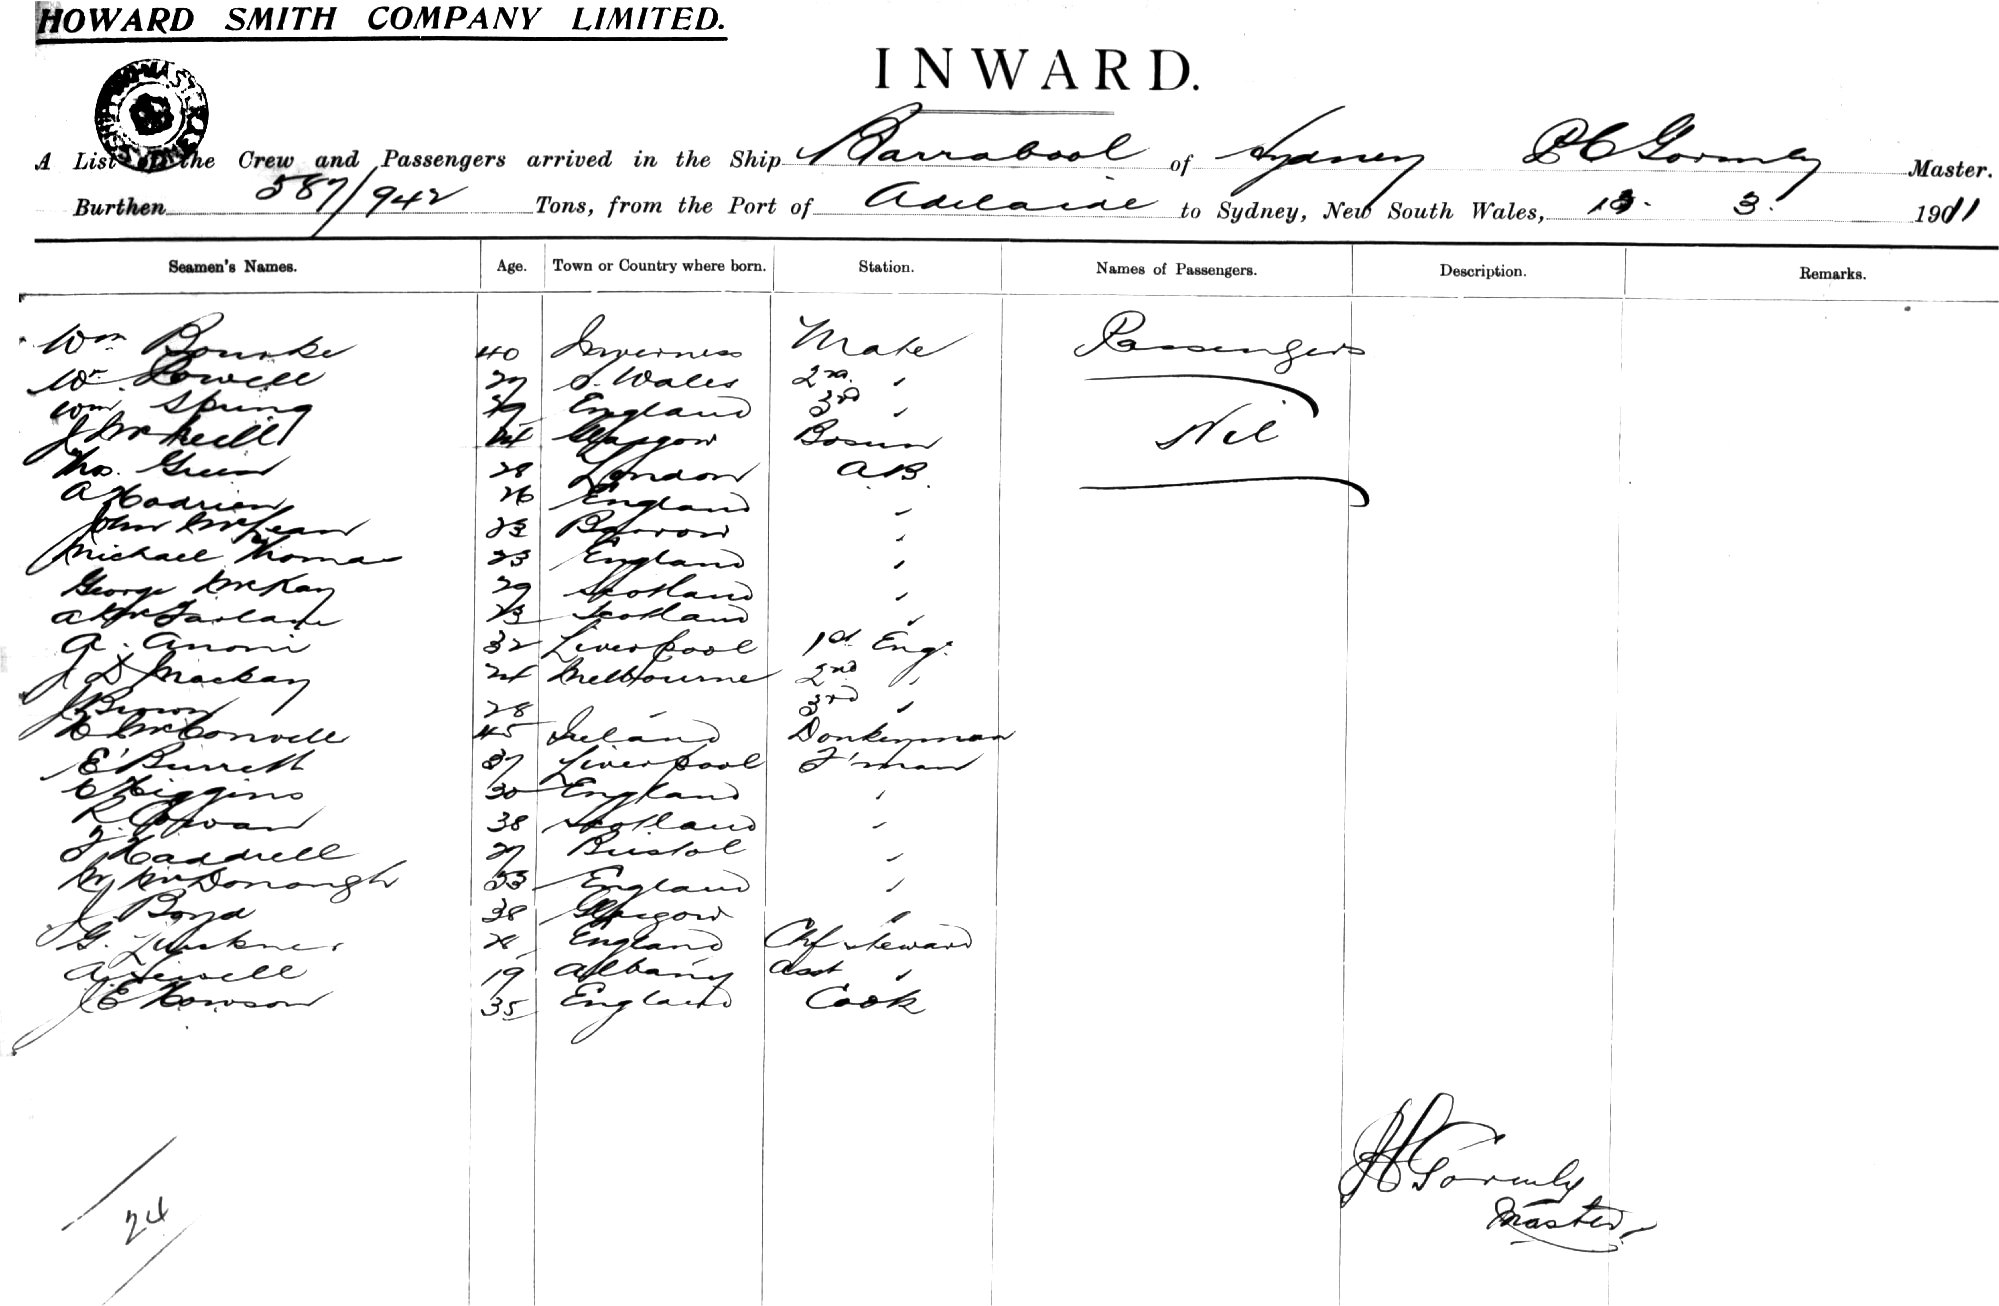 HOWARD SMITH COMPANY LIMITED.
INWARD.
A List of the Crew and Passengers arrived in the Ship Barrabool of Sydney P C Gormly Master.
Burthen 587/942 Tons, from the Port of Adelaide to Sydney, New South Wales, 3. 1911
Seamen's Names. Age. Town or Country where born. Station. Names of Passengers. Description. Remarks.
Wm Bourke 40 Inverness Mate Passengers
Wm Powell 27 S. Wales 2nd "
Wm Spring England 3rd "
J McNeill 24 Glasgow Bosun Nil
Thos. Green 28 London A.B.
A 26 England "
John McLean 23 Barrow "
Michael Thomas 23 England "
George McKay 29 Scotland "
A McFarlane 23 Scotland "
A. Anoni 32 Liverpool 1st Eng.
J D Mackay 24 Melbourne 2nd "
J Brown 28 " 3rd "
McConvell 45 Ireland Donkeyman
E Burrett 37 Liverpool F'man
C Higgins 30 England "
R Cowan 38 Scotland "
F. Haddrell 27 Bristol "
M McDonough 33 England "
J Boyd 38 Glasgow "
G. England Chf Steward
A 19 Albany Asst "
J E Howson 35 England Cook
P C Gormly
Master
24